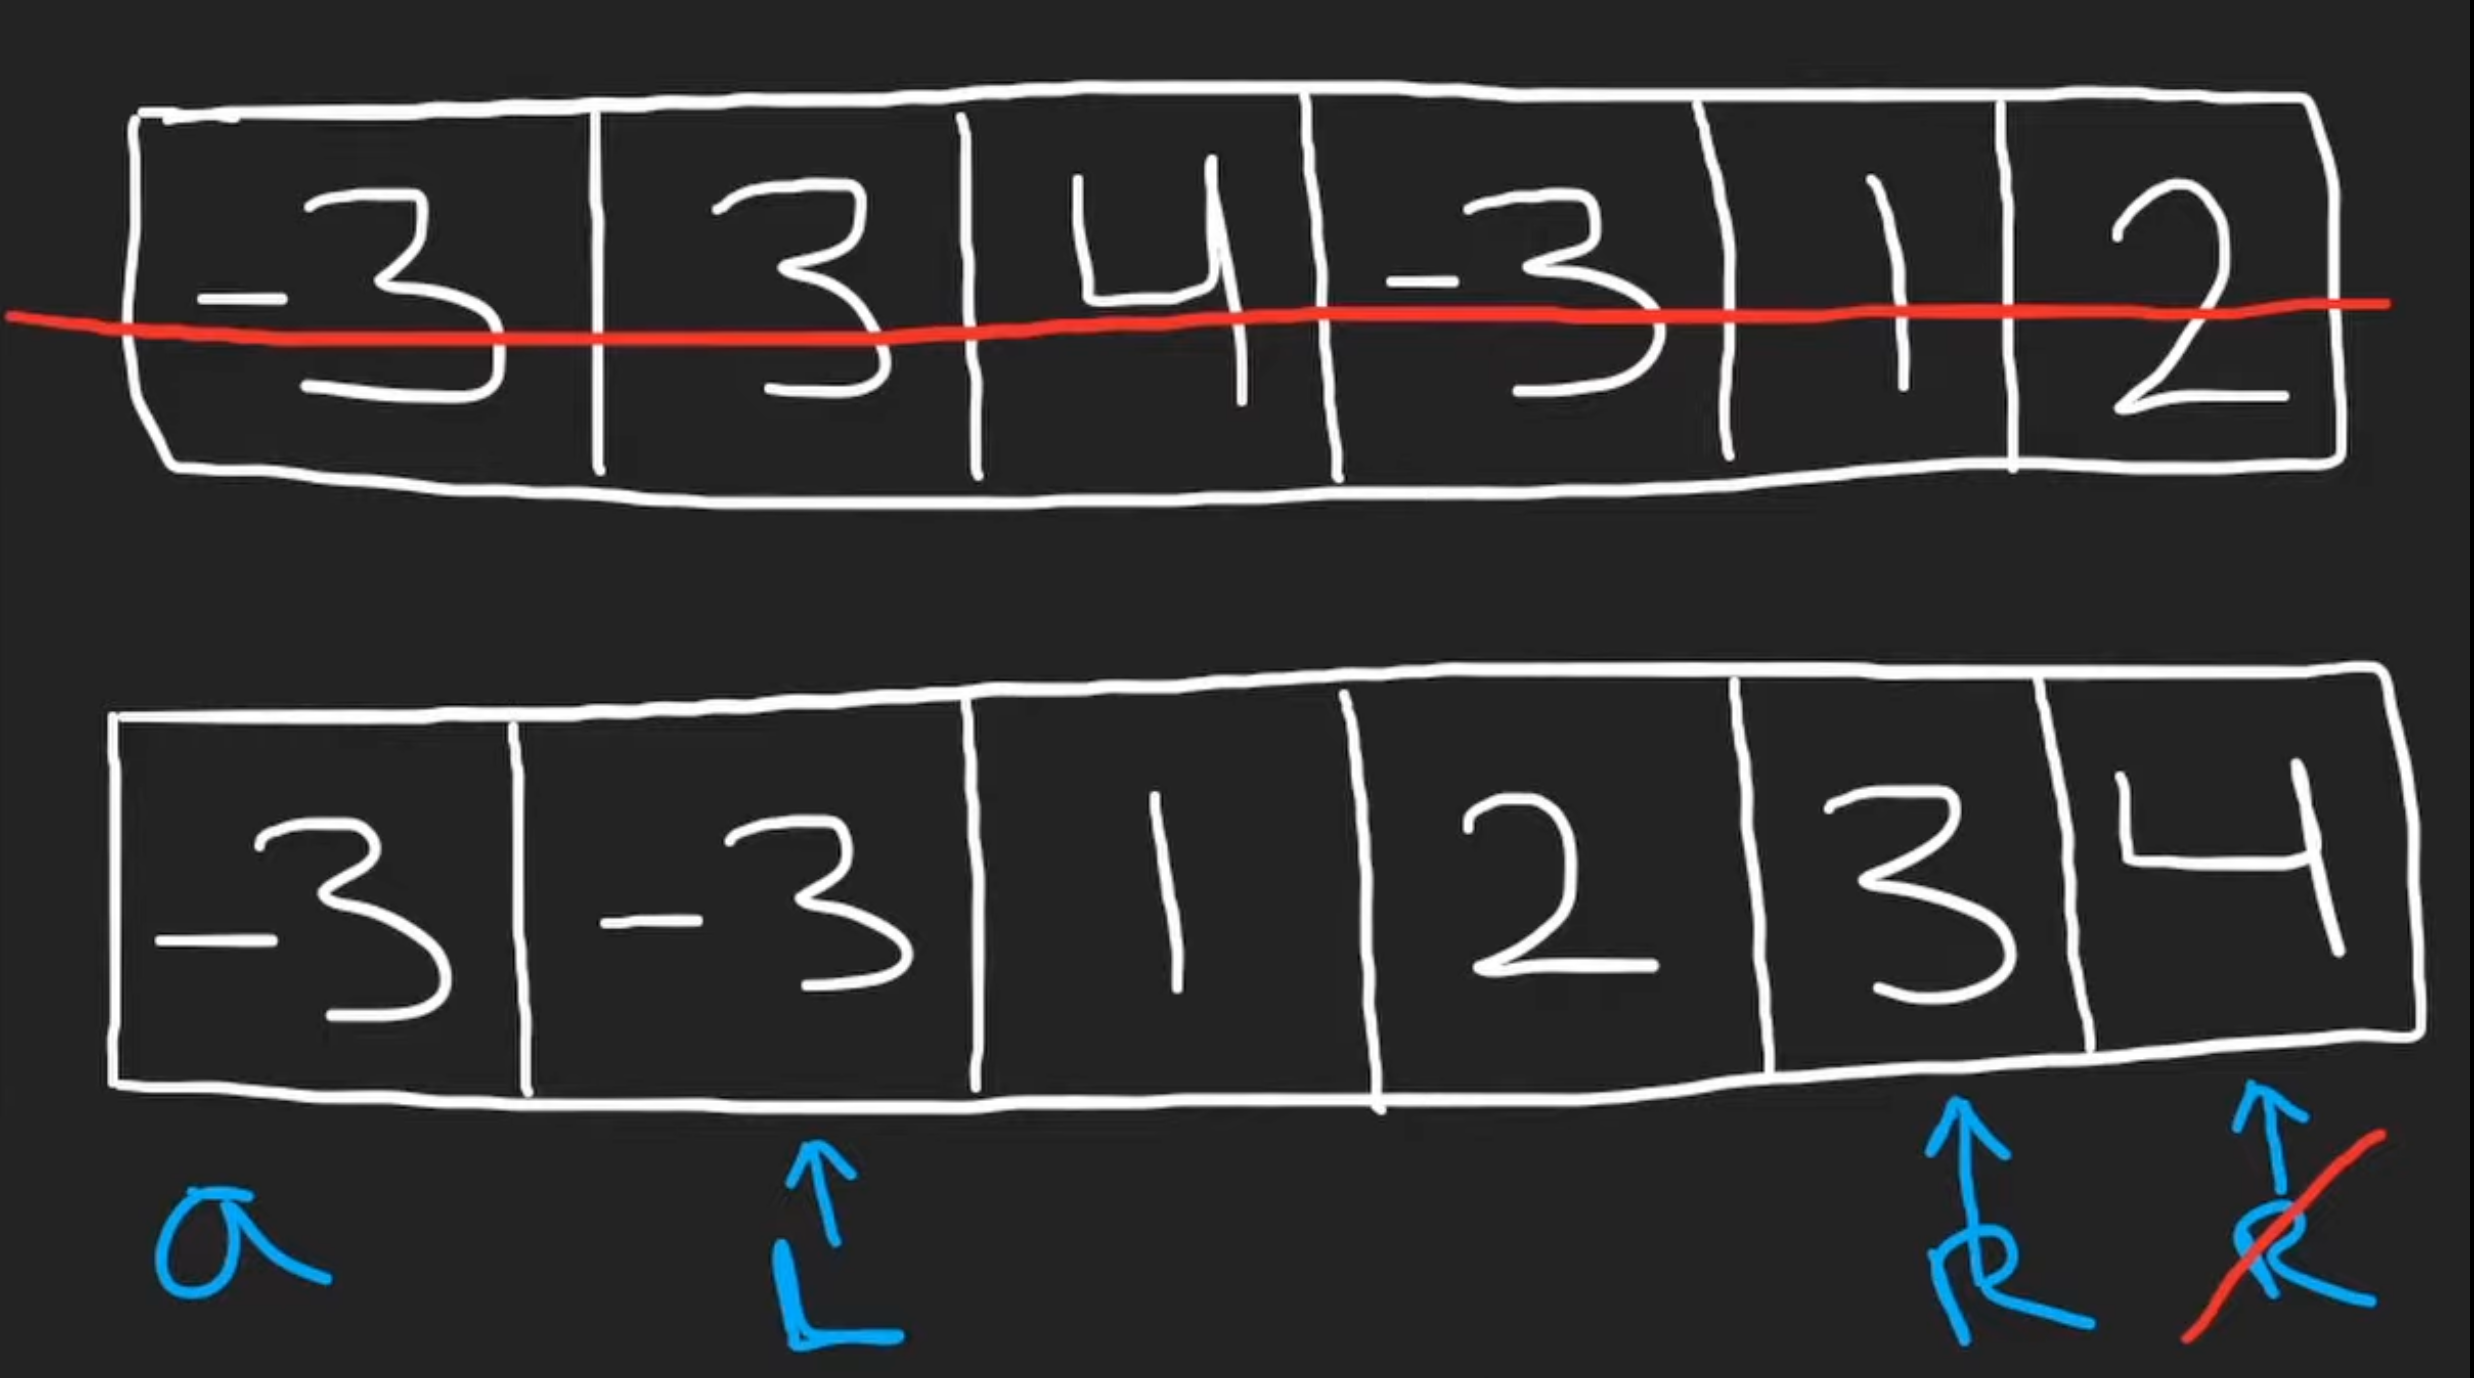 -3 3 4 -3 1 2
-3 -3 1 2 3 4
a L R R